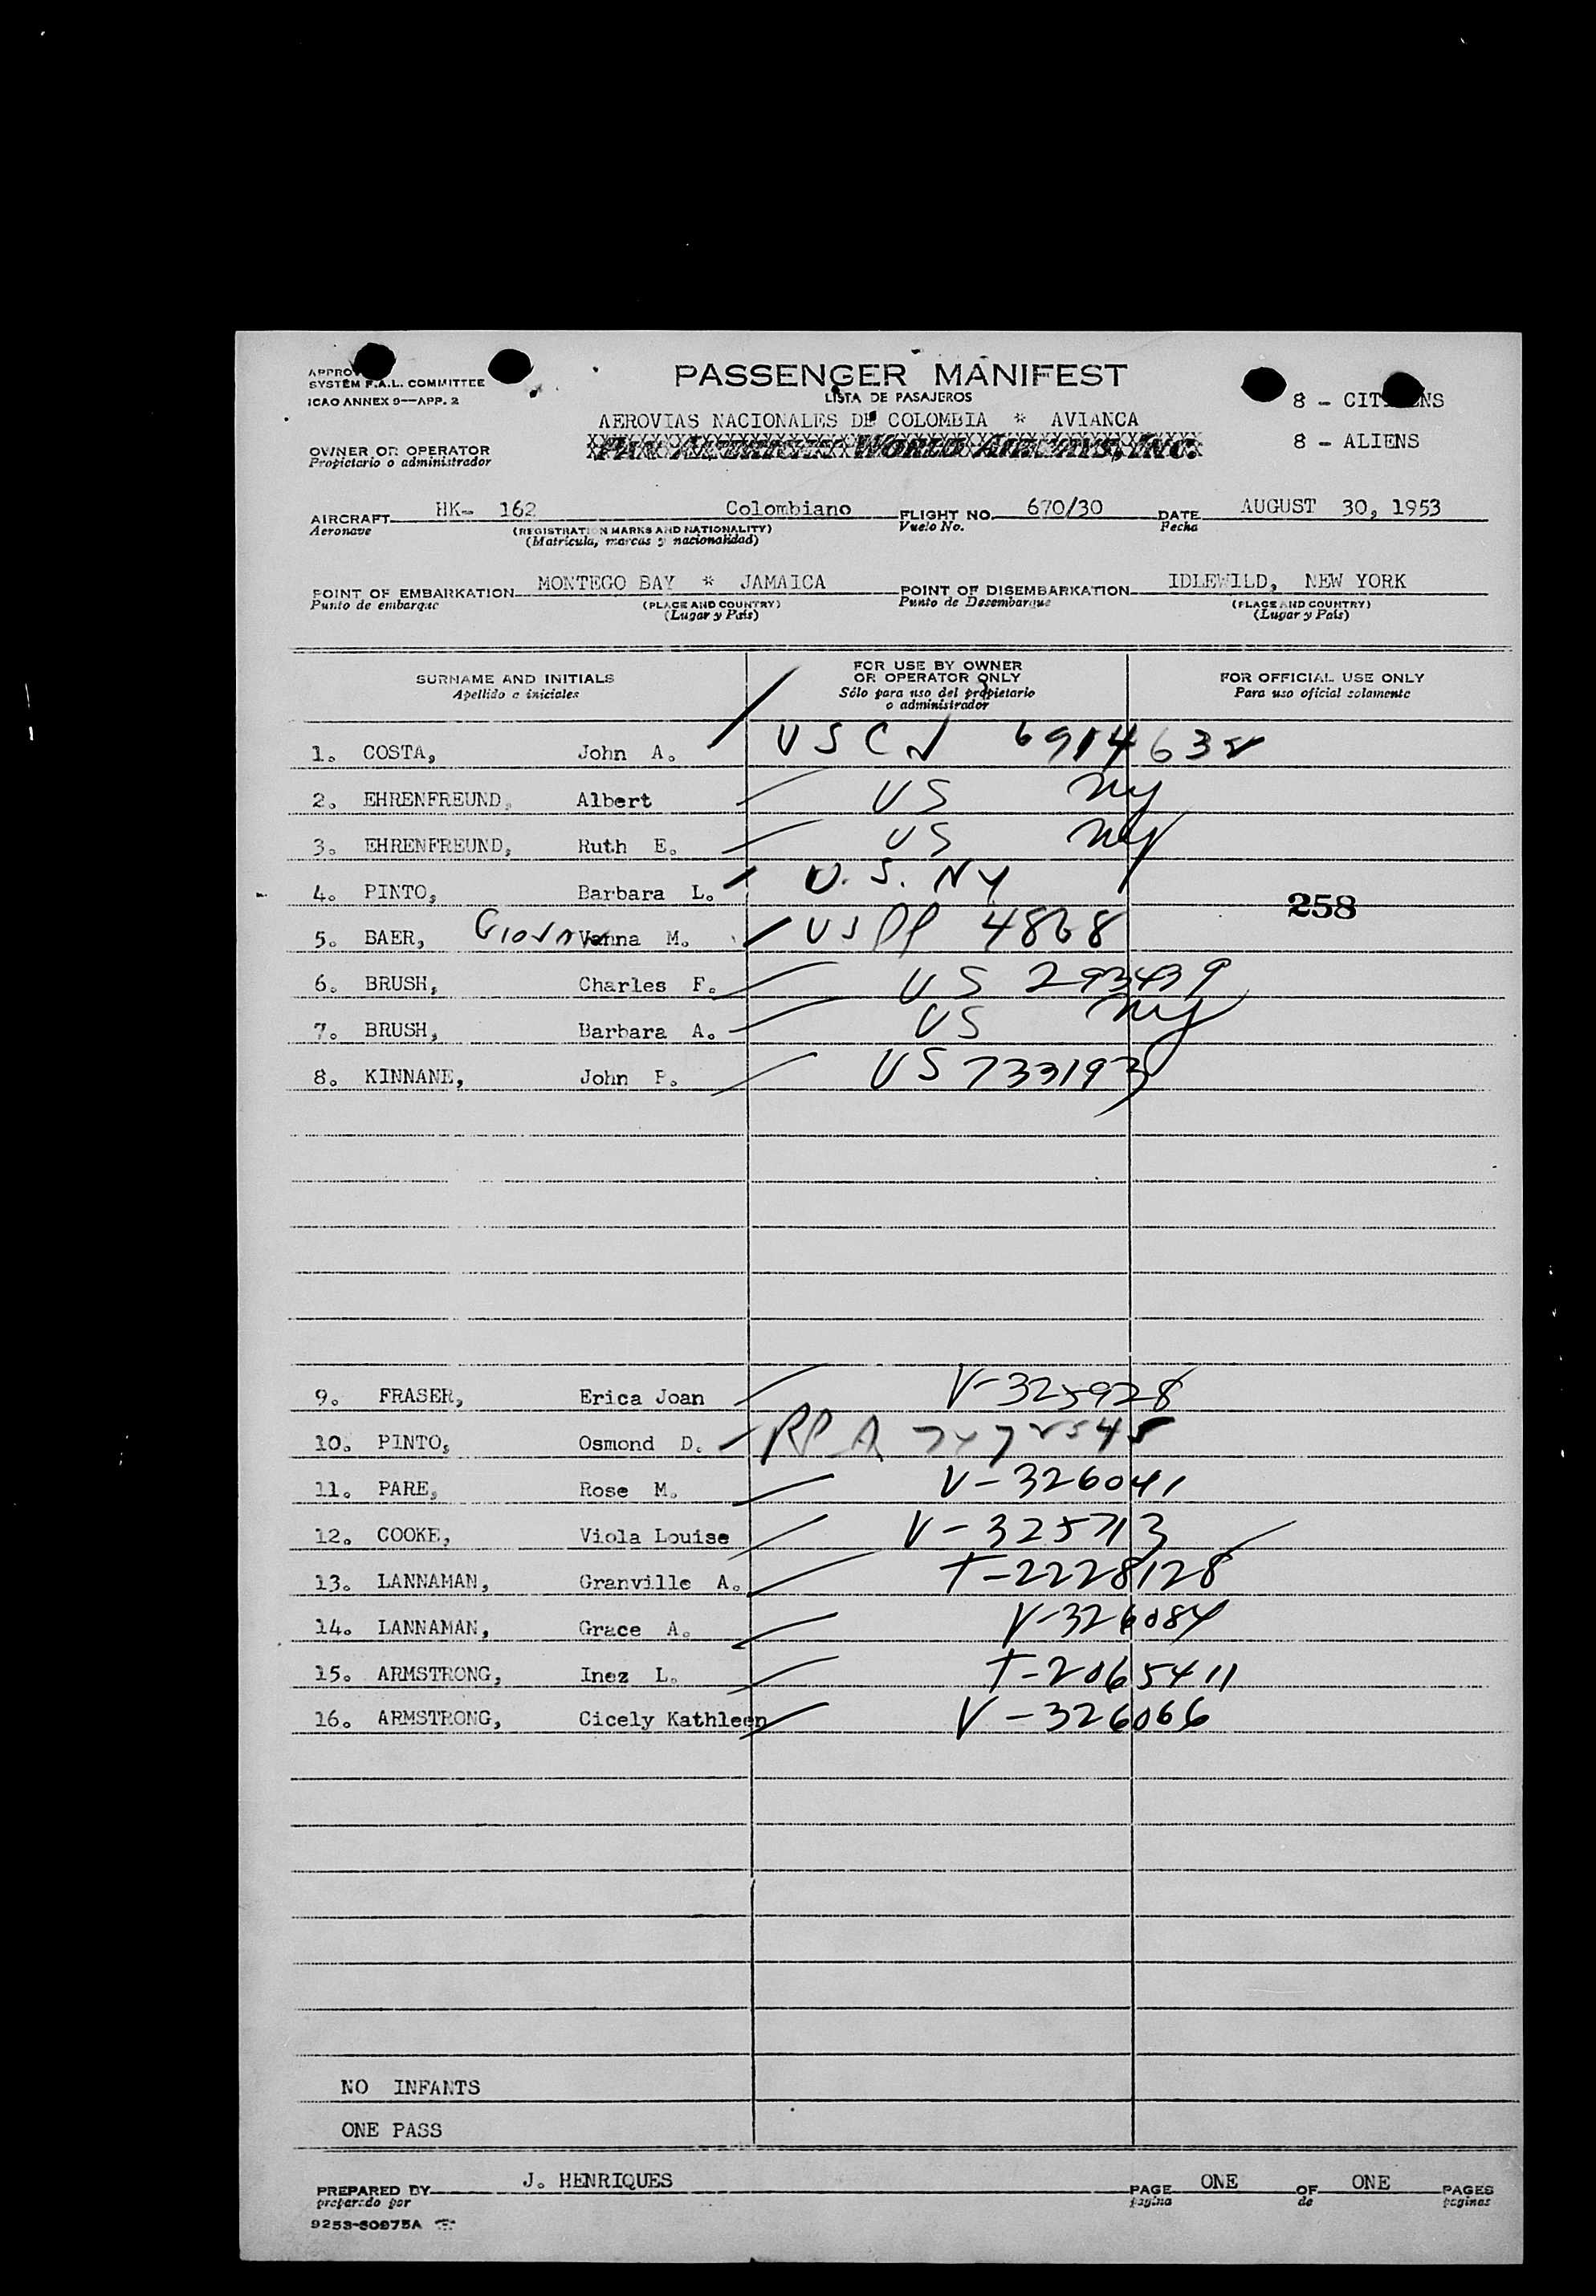 APPROV
SYSTEM F.A.L. COMMITTEE
ICAO ANNEX 9—APP. 2
PASSENGER MANIFEST
LISTA DE PASAJEROS
8 - CIT ENS
AEROVIAS NACIONALES DE COLOMBIA * AVIANCA
8 - ALIENS
OWNER OR OPERATOR PAN AMERICAN WORLD AIRWAYS, INC.
Propietario o administrador
AIRCRAFT HK- 162 Colombiano FLIGHT NO. 670/30 DATE AUGUST 30, 1953
Aeronave (REGISTRATION MARKS AND NATIONALITY) Vuelo No. Fecha
(Matrícula, marcas y nacionalidad)
POINT OF EMBARKATION MONTEGO BAY * JAMAICA POINT OF DISEMBARKATION IDLEWILD, NEW YORK
Punto de embarque (PLACE AND COUNTRY) Punto de Desembarque (PLACE AND COUNTRY)
(Lugar y País) (Lugar y País)
SURNAME AND INITIALS FOR USE BY OWNER OR OPERATOR ONLY FOR OFFICIAL USE ONLY
Apellido e iniciales Sólo para uso del propietario o administrador Para uso oficial solamente
1. COSTA, John A. USCN
2. EHRENFREUND, Albert US NY
3. EHRENFREUND, Ruth E. US NY
4. PINTO, Barbara L. U.S. NY
258
5. BAER, Giovanna M. US PP 4868
6. BRUSH, Charles F. US 293439
7. BRUSH, Barbara A. US NY
8. KINNANE, John P. US 733193
9. FRASER, Erica Joan V-325928
10. PINTO, Osmond D.
11. PARE, Rose M. V-326041
12. COOKE, Viola Louise V-325713
13. LANNAMAN, Granville A. T-2228128
14. LANNAMAN, Grace A. V-326084
15. ARMSTRONG, Inez L. T-2065411
16. ARMSTRONG, Cicely Kathleen V-326066
NO INFANTS
ONE PASS
PREPARED BY J. HENRIQUES PAGE ONE OF ONE PAGES
preparado por pagina de paginas
9253-60975A